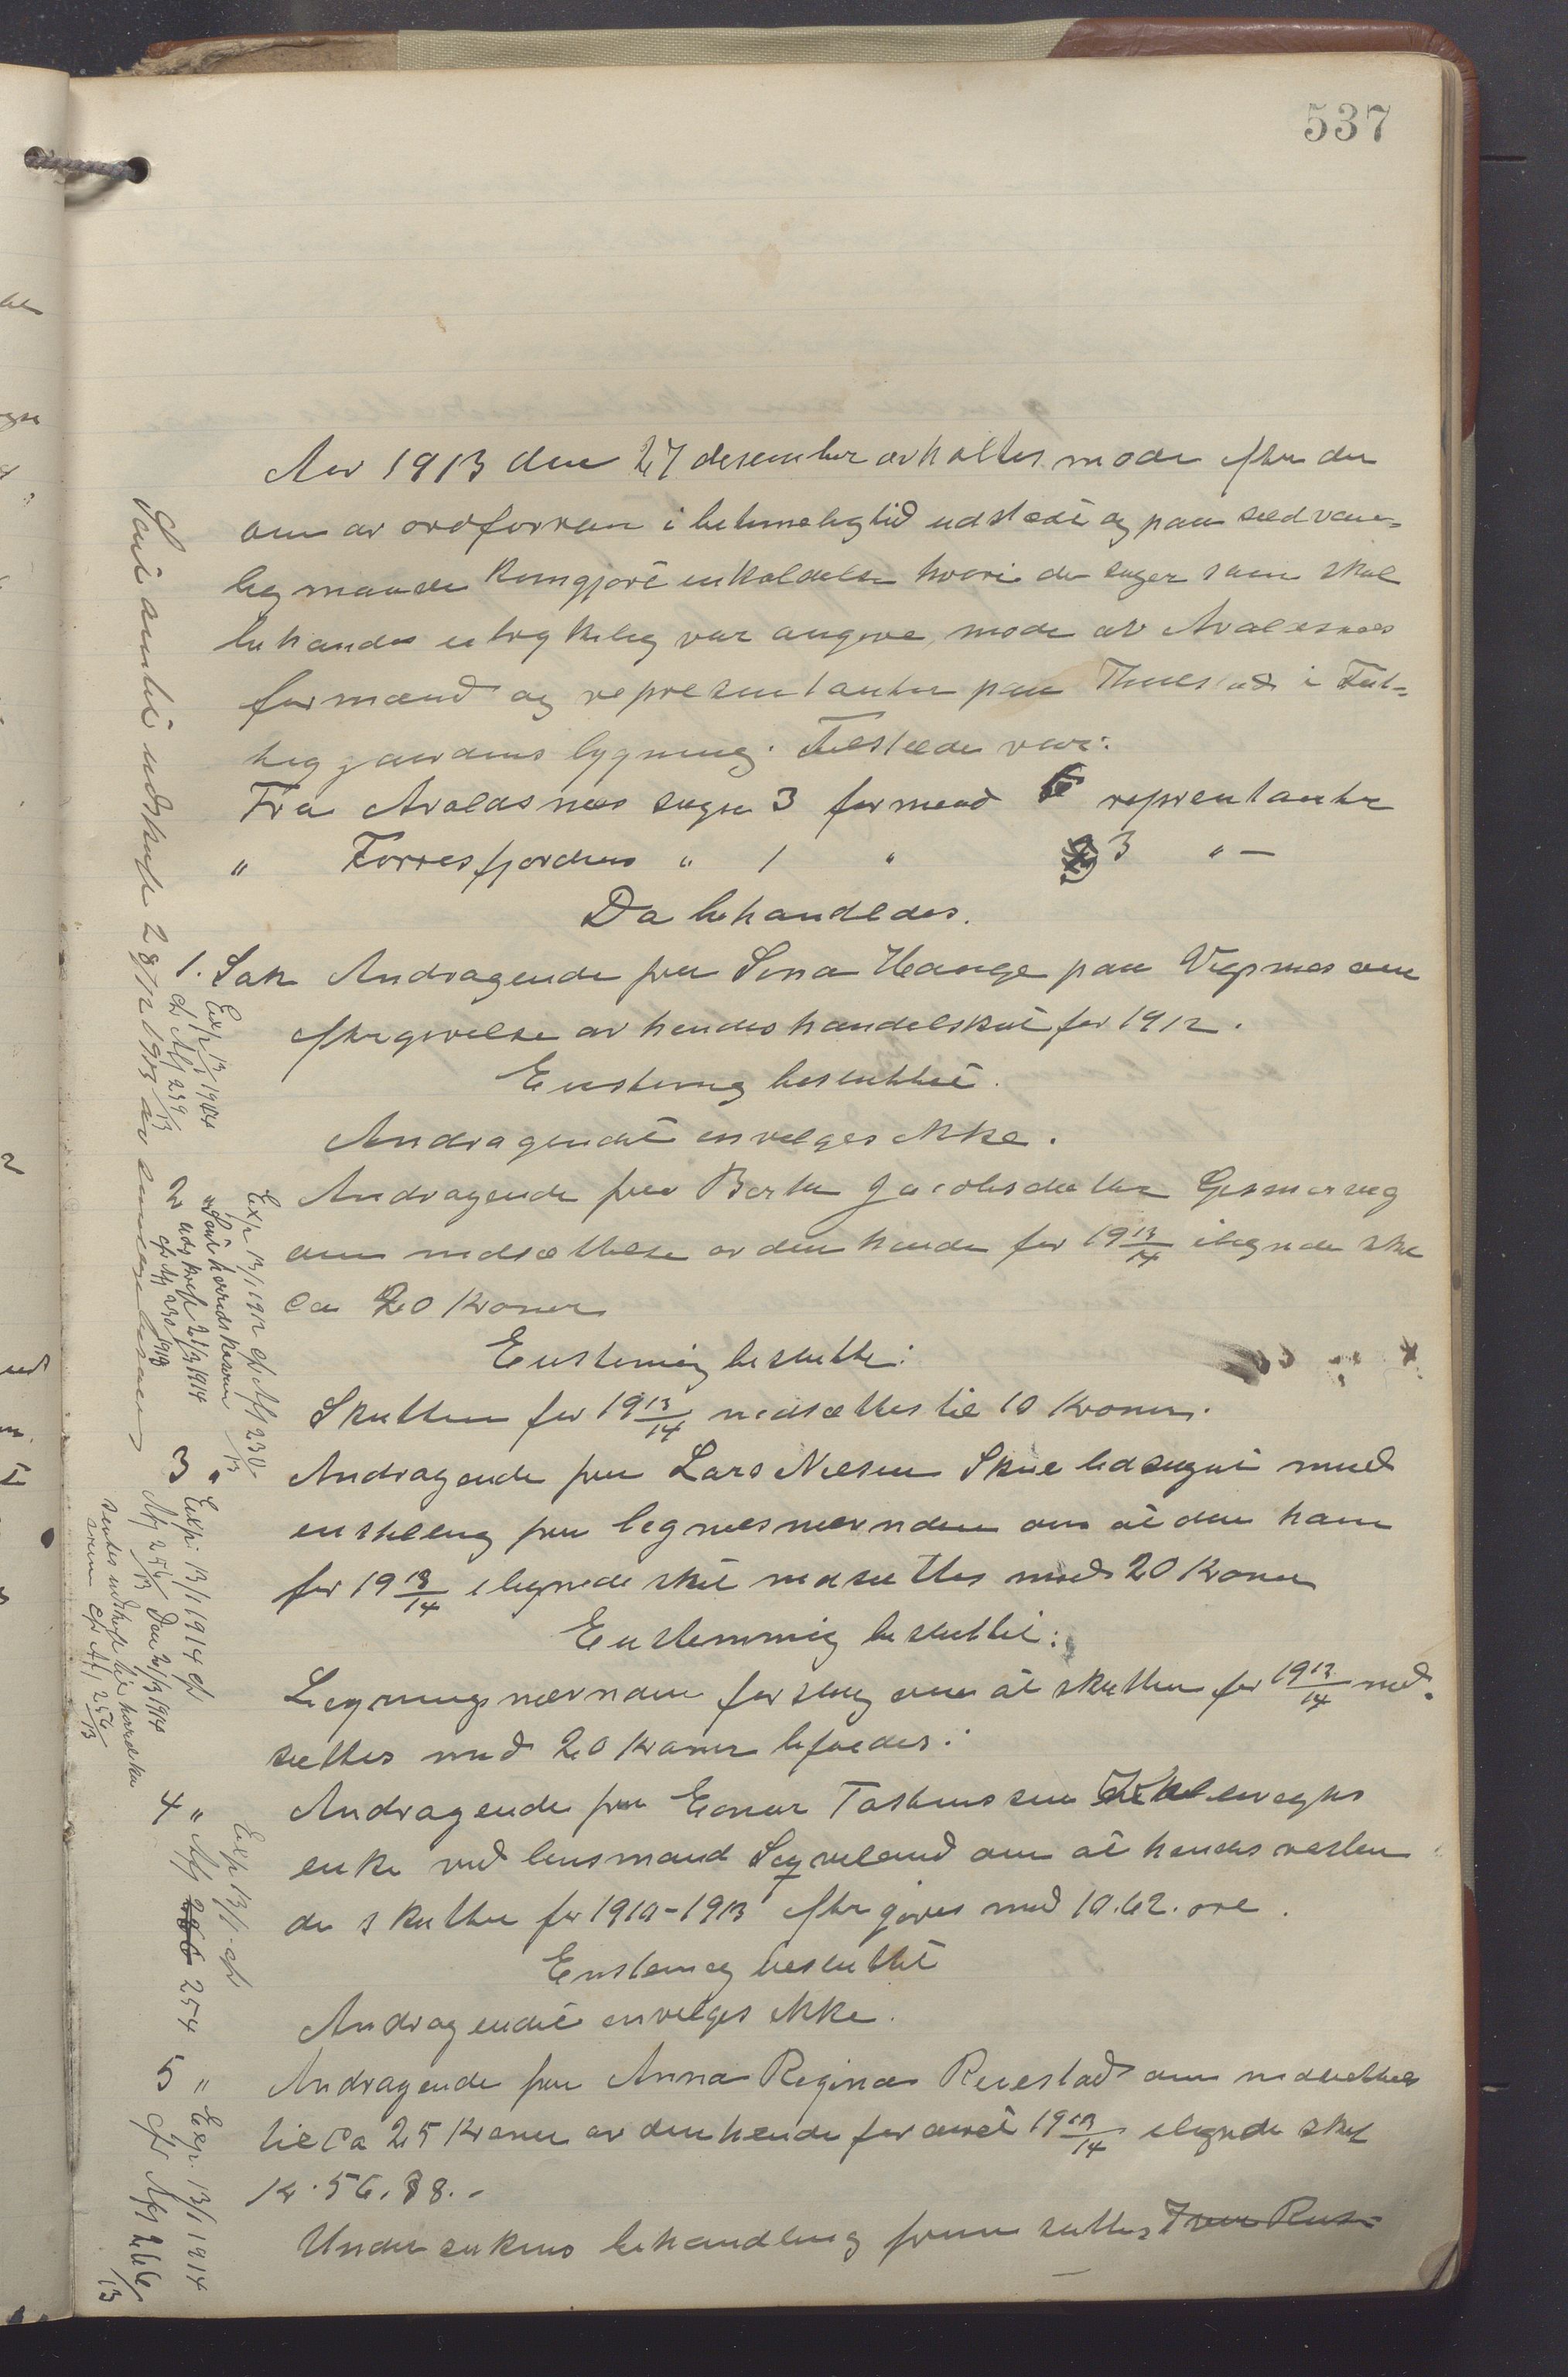 537
Aar 1913 den 27 desember avholtes møde efter den
om av ordføreren i betimelig tid udstædt og paa sedvan-
lig maade kungjort inkaldelse hvori de sager som skal
behandes utrykkelig var angive, møde av Avaldsnes
formænd og representanter paa Thuestad i Fat-
tiggaardens bygning. Tilstede var:
Fra Avaldsnes sogn 3 formænd 6 reprentanter
" Førresfjordens " 1 " 3 " —
Da behandledes.
1. Sak Andragende fra Sina Hauge paa Vignes om
eftergivelse av hendes handelskat for 1912.
Enstemig besluttet.
Andragendet invilges ikke.
2 " Andragende fra Berta Jacobsdatter
om nedsættelse av den hende for 19 13/14 ilignede skat
ca 20 kroner
Enstemig beslutte:
Skatten for 19 13/14 nedsættes til 10 kroner.
3 " Andragende fra Lars Nilsen ledsaget med
instilling fra ligningsnævnden om at den ham
for 19 13/14 ilignede skat nedsættes med 20 kroner
Enstemmig besluttet:
Ligningsnævndens forslag om at skatten for 19 13/14 ned-
sættes med 20 kroner bifaldes.
4 " Andragende fra Einar Tostensens
enke ved lensmand om at hendes resteren
de skatter for 1910-1913 eftergives med 10.62. øre.
Enstemig besluttet
Andragendet invilges ikke.
5 " Andragende fra Anna Regina om nedsættelse
til ca 25 kroner av den hende for aaret 19 13/14 ilignede skat
kr. 56.88.-
Under sakens behandling
Sent amtet utskrift 28/12 1913 av
Exp 13/1 1914
cf Afs 239/13
Exp. 13/1 1912 cf. Afs 230/13
Sent herredskasseren
utskrift 21/3 1914
cf Afs 230/1913
Exp. 13/1 1914 cf
Afs 254/13 Den 21/3 1914
sendes utskrift til herredska
seren cf Af 254/13
Exp 13/1. cf
Afs 254
Exp. 13/1 1914
cf Afs 266/13